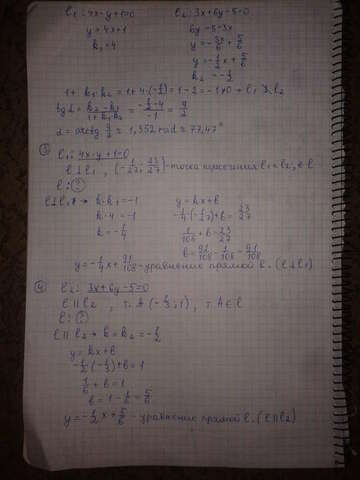 l₁: 4x-y+1=0    l₂: 3x+6y-5=0
y=4x+1    6y=5-3x
k₁=4    y=-3x/6+5/6
y=-1/2x+5/6
k₂=-1/2
1+k₁k₂=1+4·(-1/2)=1-2=-1≠0 → l₁ ⊥̸ l₂
tgα=(k₂-k₁)/(1+k₁k₂)=(-1/2-4)/-1=9/2
α=arctg 9/2≈1,352 rad≈77,47°
③ l₁: 4x-y+1=0
l⊥l₁, (-1/27; 23/27)-точка пересечения l₁ и l₂, ∈ l
l: ?
l⊥l₁ → k·k₁=-1    y=kx+b
k·4=-1    -1/4·(-1/27)+b=23/27
k=-1/4    1/108+b=23/27
b=92/108-1/108=91/108
y=-1/4x+91/108-уравнение прямой l. (l⊥l₁)
④ l₂: 3x+6y-5=0
l∥l₂, т. A(-1/3; 1), т. A∈l
l: ?
l∥l₂ → k=k₂=-1/2
y=kx+b
-1/2·(-1/3)+b=1
1/6+b=1
b=1-1/6=5/6
y=-1/2x+5/6-уравнение прямой l. (l∥l₂)